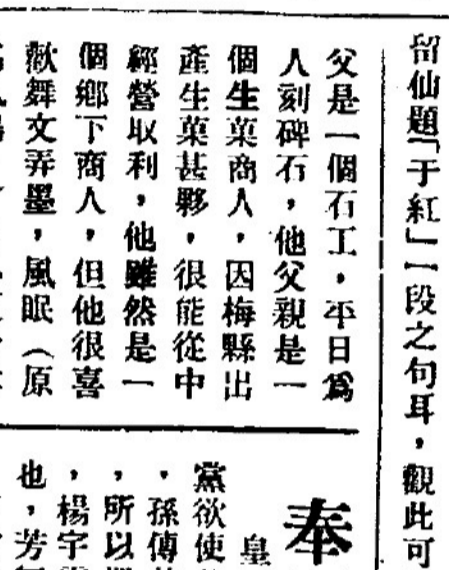 留仙題「于紅」一段之句耳，觀此可
父是一個石工，平日爲
人刻碑石，他父親是一
個生菓商人，因梅縣出
產生菓甚夥，很能從中
經營取利，他雖然是一
個鄉下商人，但他很喜
歡舞文弄墨，風眠（原
奉
皇
黨欲使
，孫傳
，所以
，楊宇
也，芳